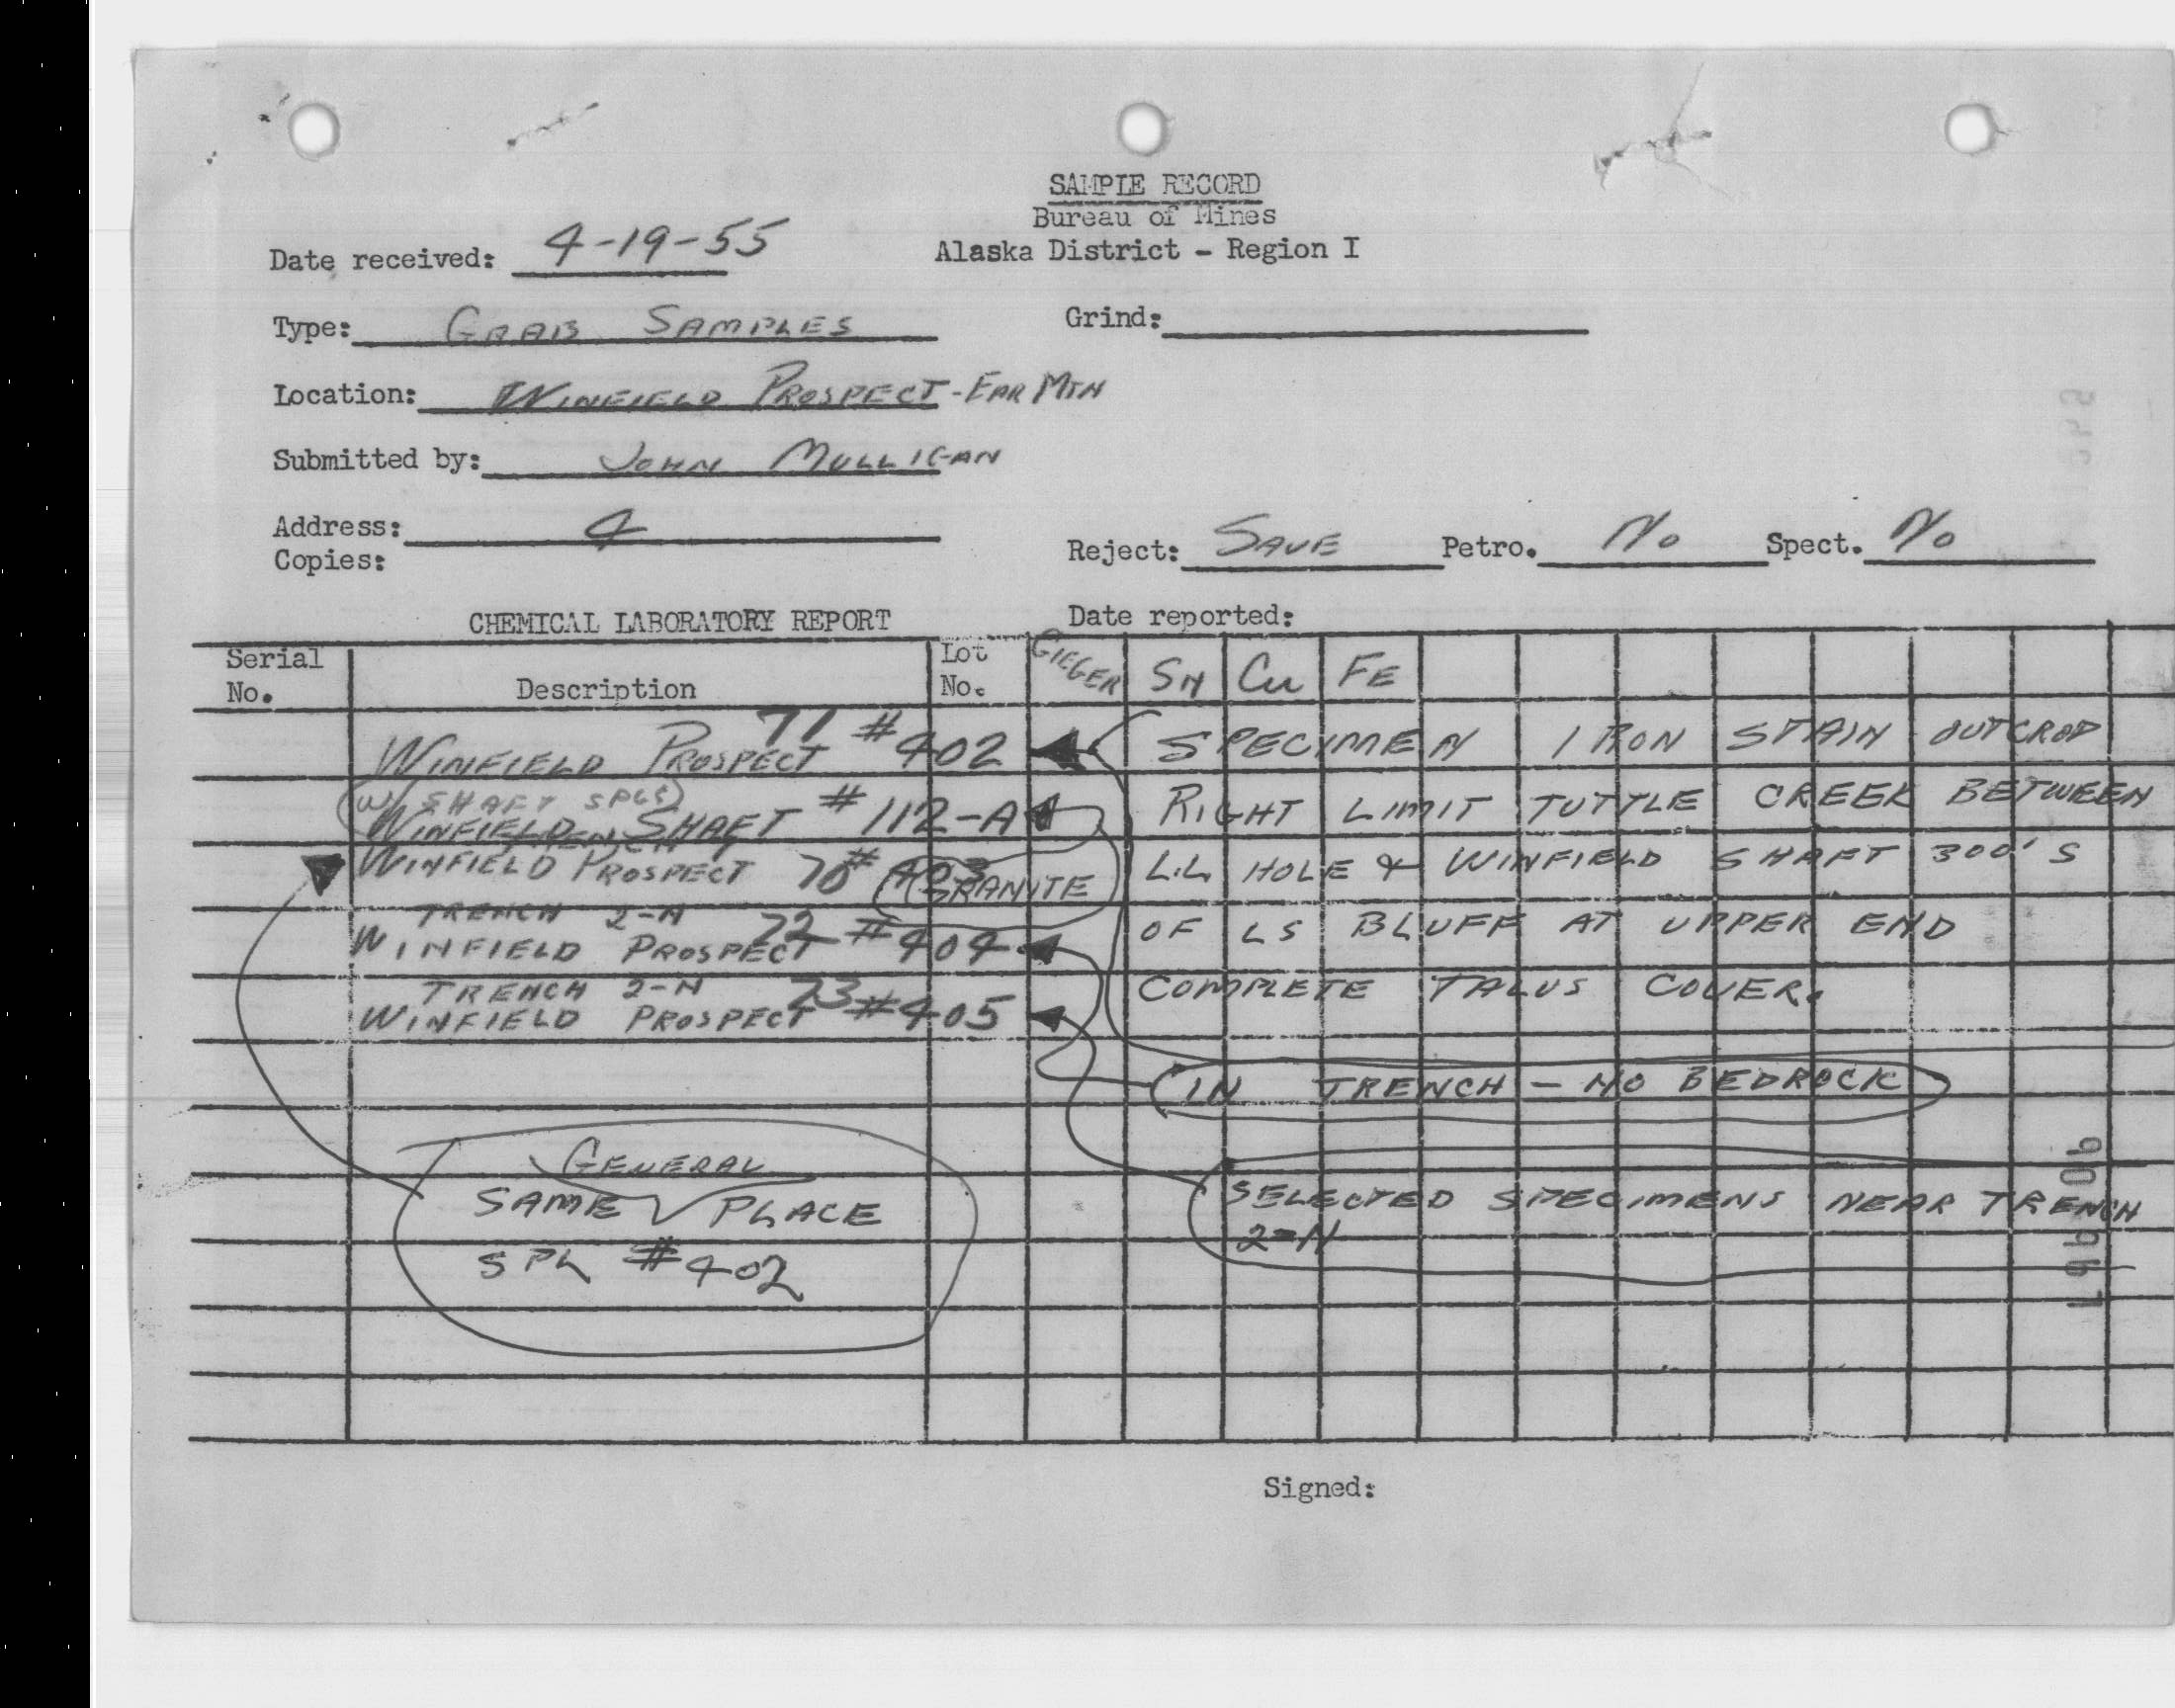 SAMPLE RECORD
Bureau of Mines
Alaska District - Region I
Date received: 4-19-55
Type: GRAB SAMPLES
Grind:
Location: WINFIELD PROSPECT - EAR MTN
Submitted by: JOHN MULLIGAN
Address: 4
Copies:
Reject: SAVE Petro. No Spect. No
CHEMICAL LABORATORY REPORT
Date reported:
Serial No. Description Lot No. GIEGER SN CU FE
WINFIELD PROSPECT 71 #402
SPECIMEN IRON STAIN OUTCROP
(W/ SHAFT SPLS)
WINFIELD SHAFT #112-A
RIGHT LIMIT TUTTLE CREEK BETWEEN
WINFIELD PROSPECT 70 #403
GRANITE
L.L. HOLE & WINFIELD SHAFT 300' S
TRENCH 2-N
WINFIELD PROSPECT 72 #404
OF LS BLUFF AT UPPER END
TRENCH 2-N
WINFIELD PROSPECT 73 #405
COMPLETE TALUS COVER.
IN TRENCH - NO BEDROCK
GENERAL
SAME PLACE
SPL #402
SELECTED SPECIMENS NEAR TRENCH
2-N
Signed: